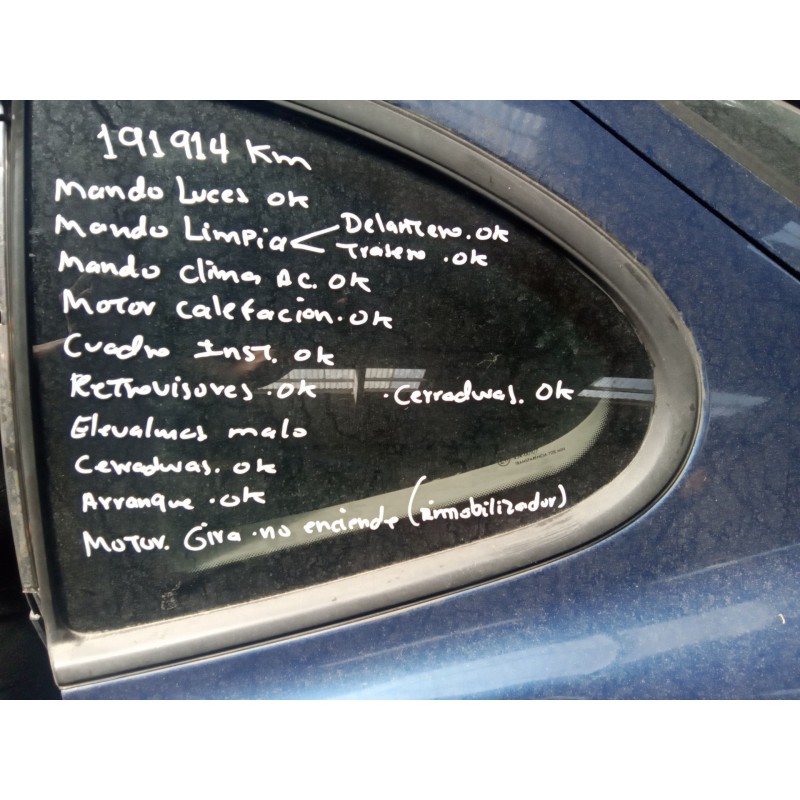 191914 Km
Mando Luces ok
Mando Limpia Delantero. ok
Trasero. ok
Mando clima AC. ok
Motor calefacion. ok
Cuadro Inst. ok
Retrovisores. ok
. Cerraduras. ok
Elevalunas malo
Cerraduras. ok
Arranque. ok
Motor. Gira. no enciende (inmobilizador)